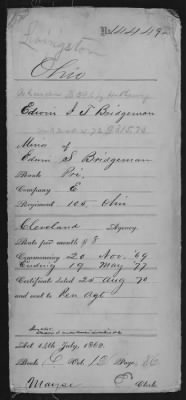 Livingston
No. 144492
Ohio
Edwin F. T. Bridgeman
Minor of
Edwin S. Bridgeman
Rank Pri.
Company E
Regiment 105. Ohio
Cleveland Agency.
Rate per month $8
Commencing 20 Nov. '69
Ending 19 May '77
Certificate dated 25 Aug '70
and sent to Pen Agt
Act 14th July, 1862.
Book C Vol. 12 Page 86
Clerk